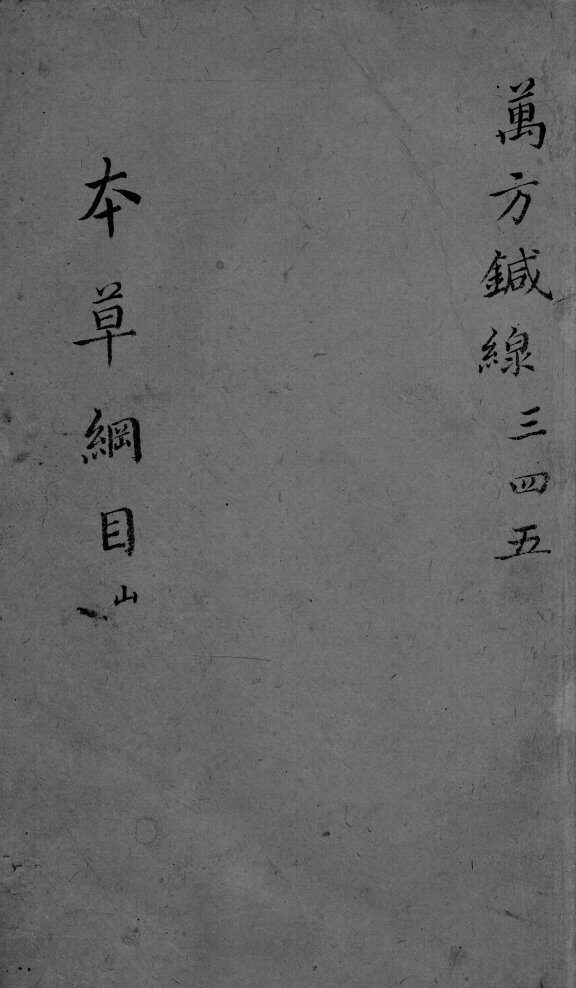 萬方鍼線三四五
本草綱目山